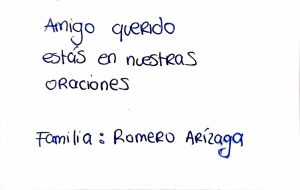 Amigo querido
estás en nuestras
oraciones
Familia: Romero Arízaga